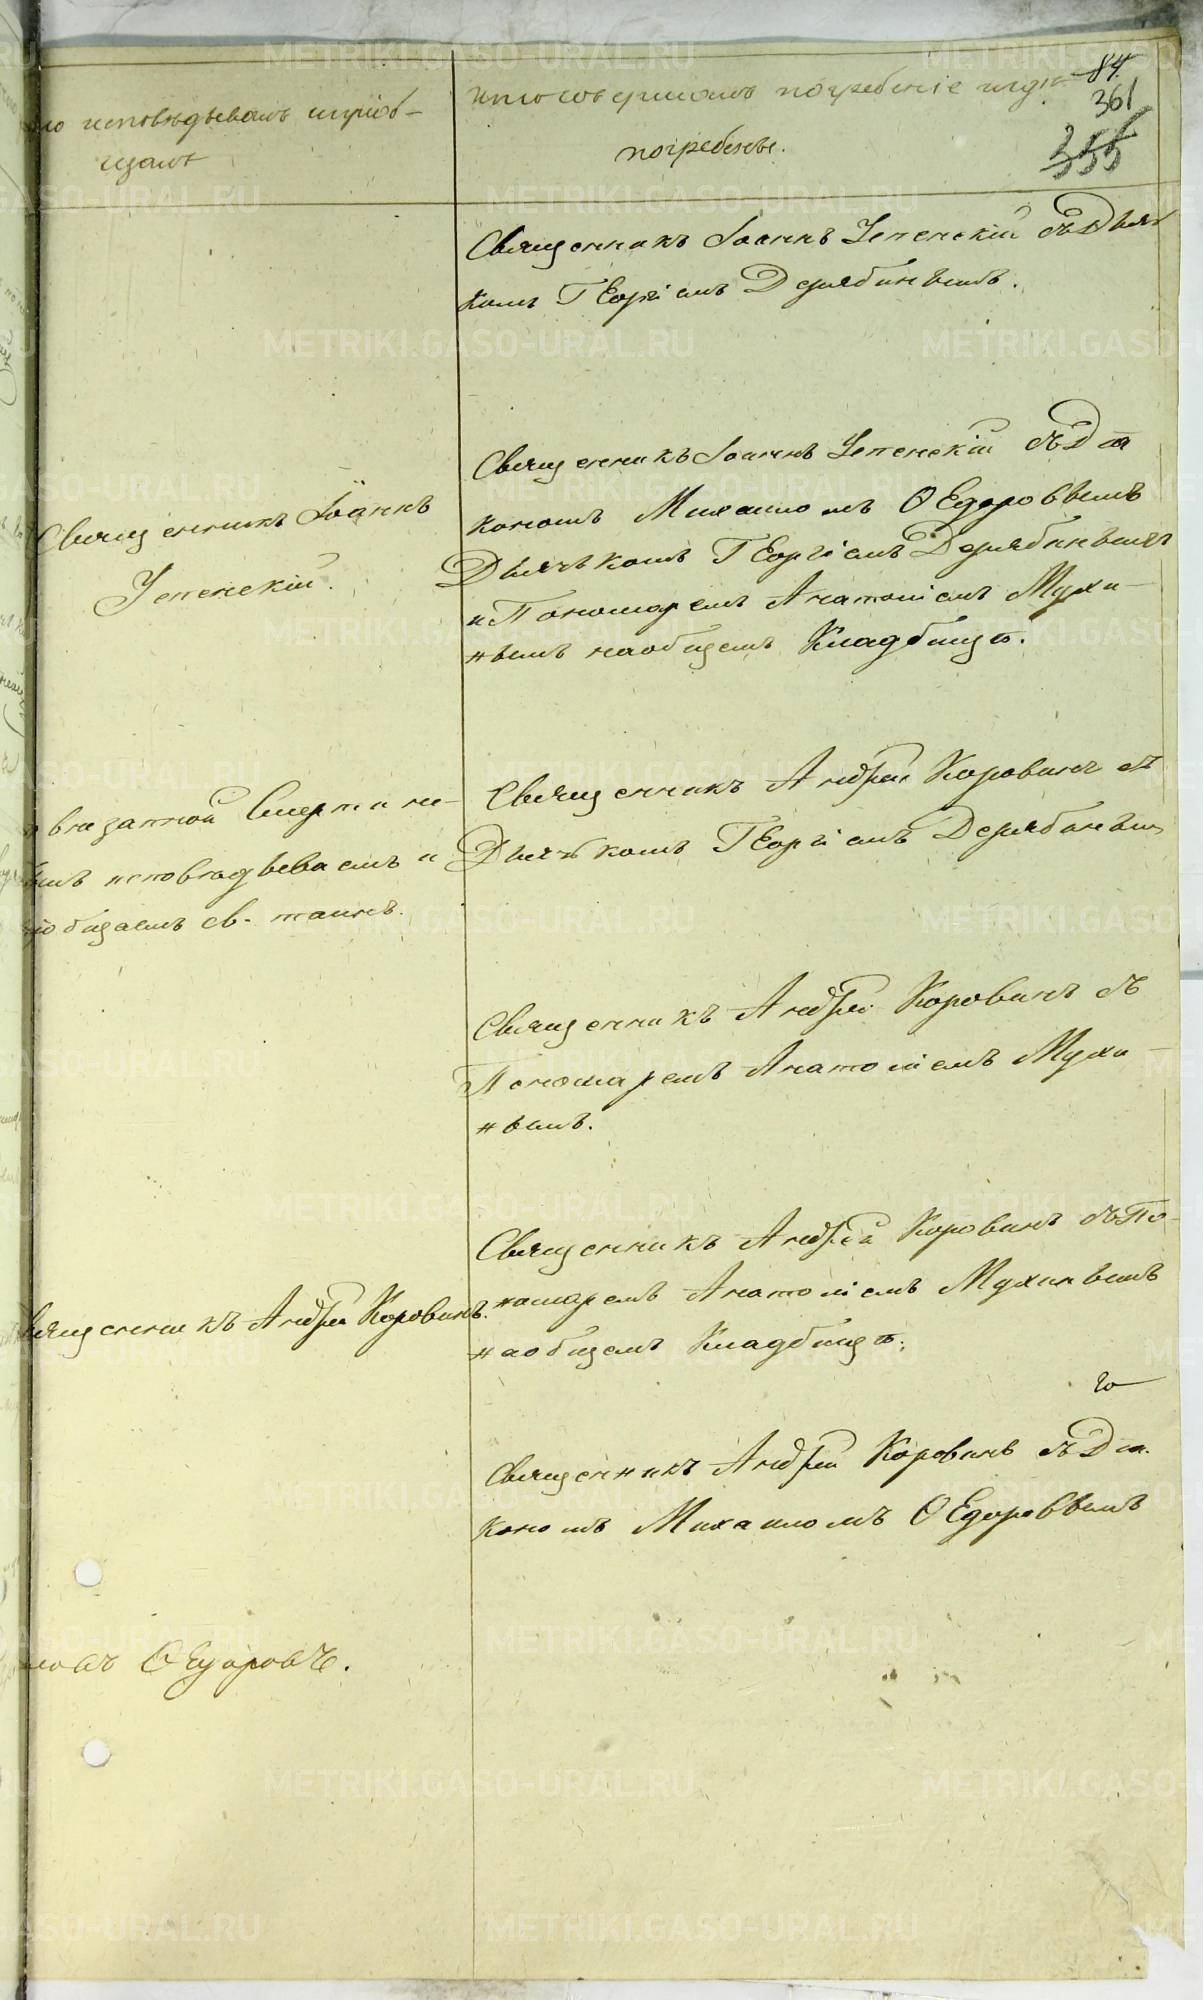 84.
361
355
исповѣдывалъ и пріоб-
щалъ
Кто совершалъ погребеніе и гдѣ
погребены.
Священникъ Іоаннъ Успенскій съ Дьяч
комъ Георгіемъ Дерябинымъ.
Священникъ Іоаннъ
Успенскій.
Священникъ Іоаннъ Успенскій съ Діа
кономъ Михаиломъ Ѳедоровымъ
Дьячькомъ Георгіемъ Дерябинымъ
и Пономаремъ Анатоліемъ Мухи-
нымъ на общемъ Кладбищѣ.
внезапной Смерти не-
исповѣдываемъ и
общаемъ св. таинъ.
Священникъ Андрей Коровинъ съ
Дьячькомъ Георгіемъ Дерябинымъ
Священникъ Андрей Коровинъ съ
Пономаремъ Анатоліемъ Мухи-
нымъ.
Священникъ Андрей Коровинъ.
Священникъ Андрей Коровинъ съ По-
номаремъ Анатоліемъ Мухинымъ
на общемъ Кладбищѣ.
Священникъ Андрей Коровинъ съ Діа
кономъ Михаиломъ Ѳедоровымъ
Ѳедоровъ.
METRIKI.GASO-URAL.RU